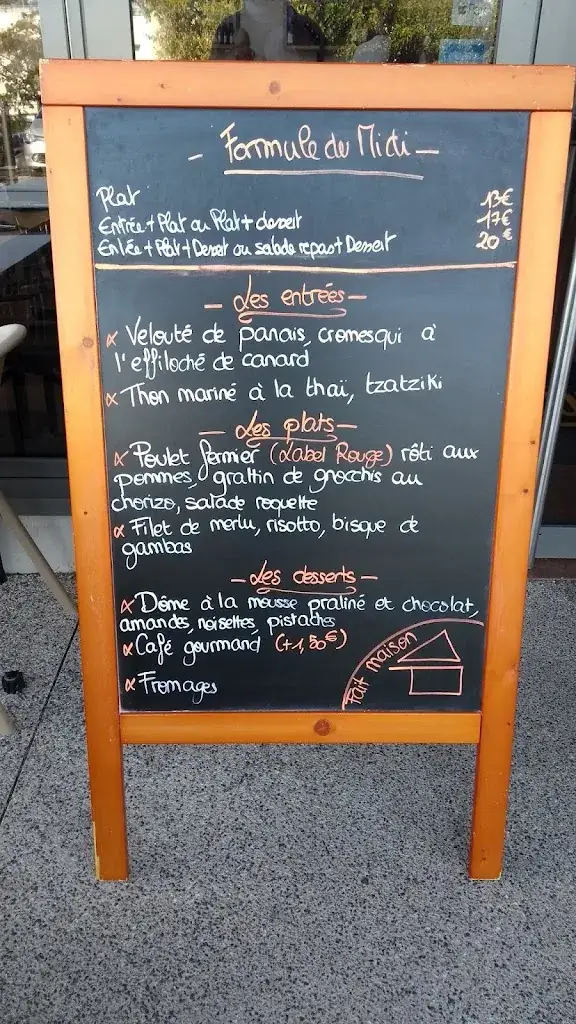 - Formule du Midi -
Plat 13€
Entrée + Plat ou Plat + dessert 17€
Entrée + Plat + Dessert ou salade repas + Dessert 20€
- Les entrées -
Velouté de panais, cromesqui à
l'effiloché de canard
Thon mariné à la thaï, tzatziki
- Les plats -
Poulet fermier (Label Rouge) rôti aux
pommes, grattin de gnocchis au
chorizo, salade roquette
Filet de merlu, risotto, bisque de
gambas
- Les desserts -
Dôme à la mousse praliné et chocolat,
amandes, noisettes, pistaches
Café gourmand (+1,50€)
Fromages
Fait maison